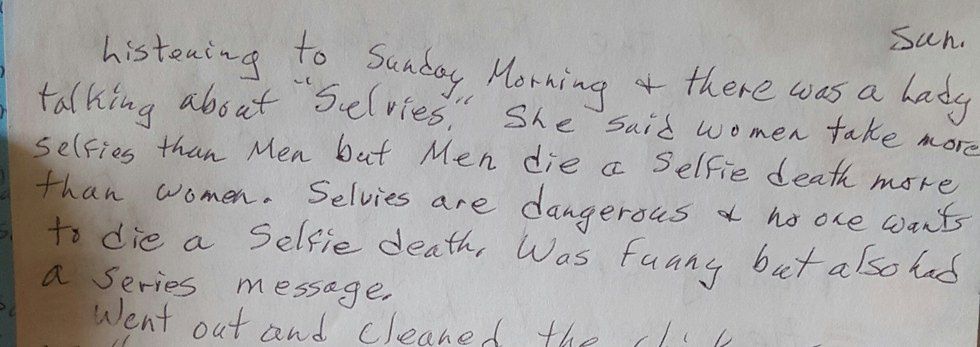 Sun.
Listening to Sunday Morning & there was a Lady
talking about "Selvies." She said women take more
selfies than Men but Men die a Selfie death more
than women. Selvies are dangerous & no one wants
to die a Selfie death. Was funny but also had
a Series message.
Went out and cleaned the